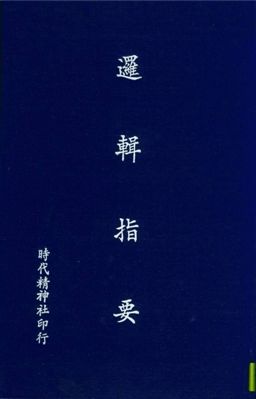 邏輯指要
時代精神社印行